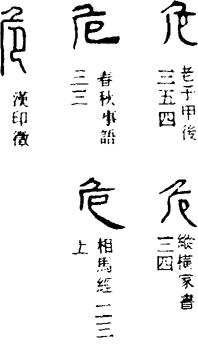 危
老子甲後
三五四
危
縱橫家書
三四
危
春秋事語
三三
危
相馬經二三
上
危
漢印徵